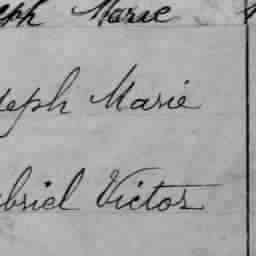 eph Marie
seph Marie
abriel Victor